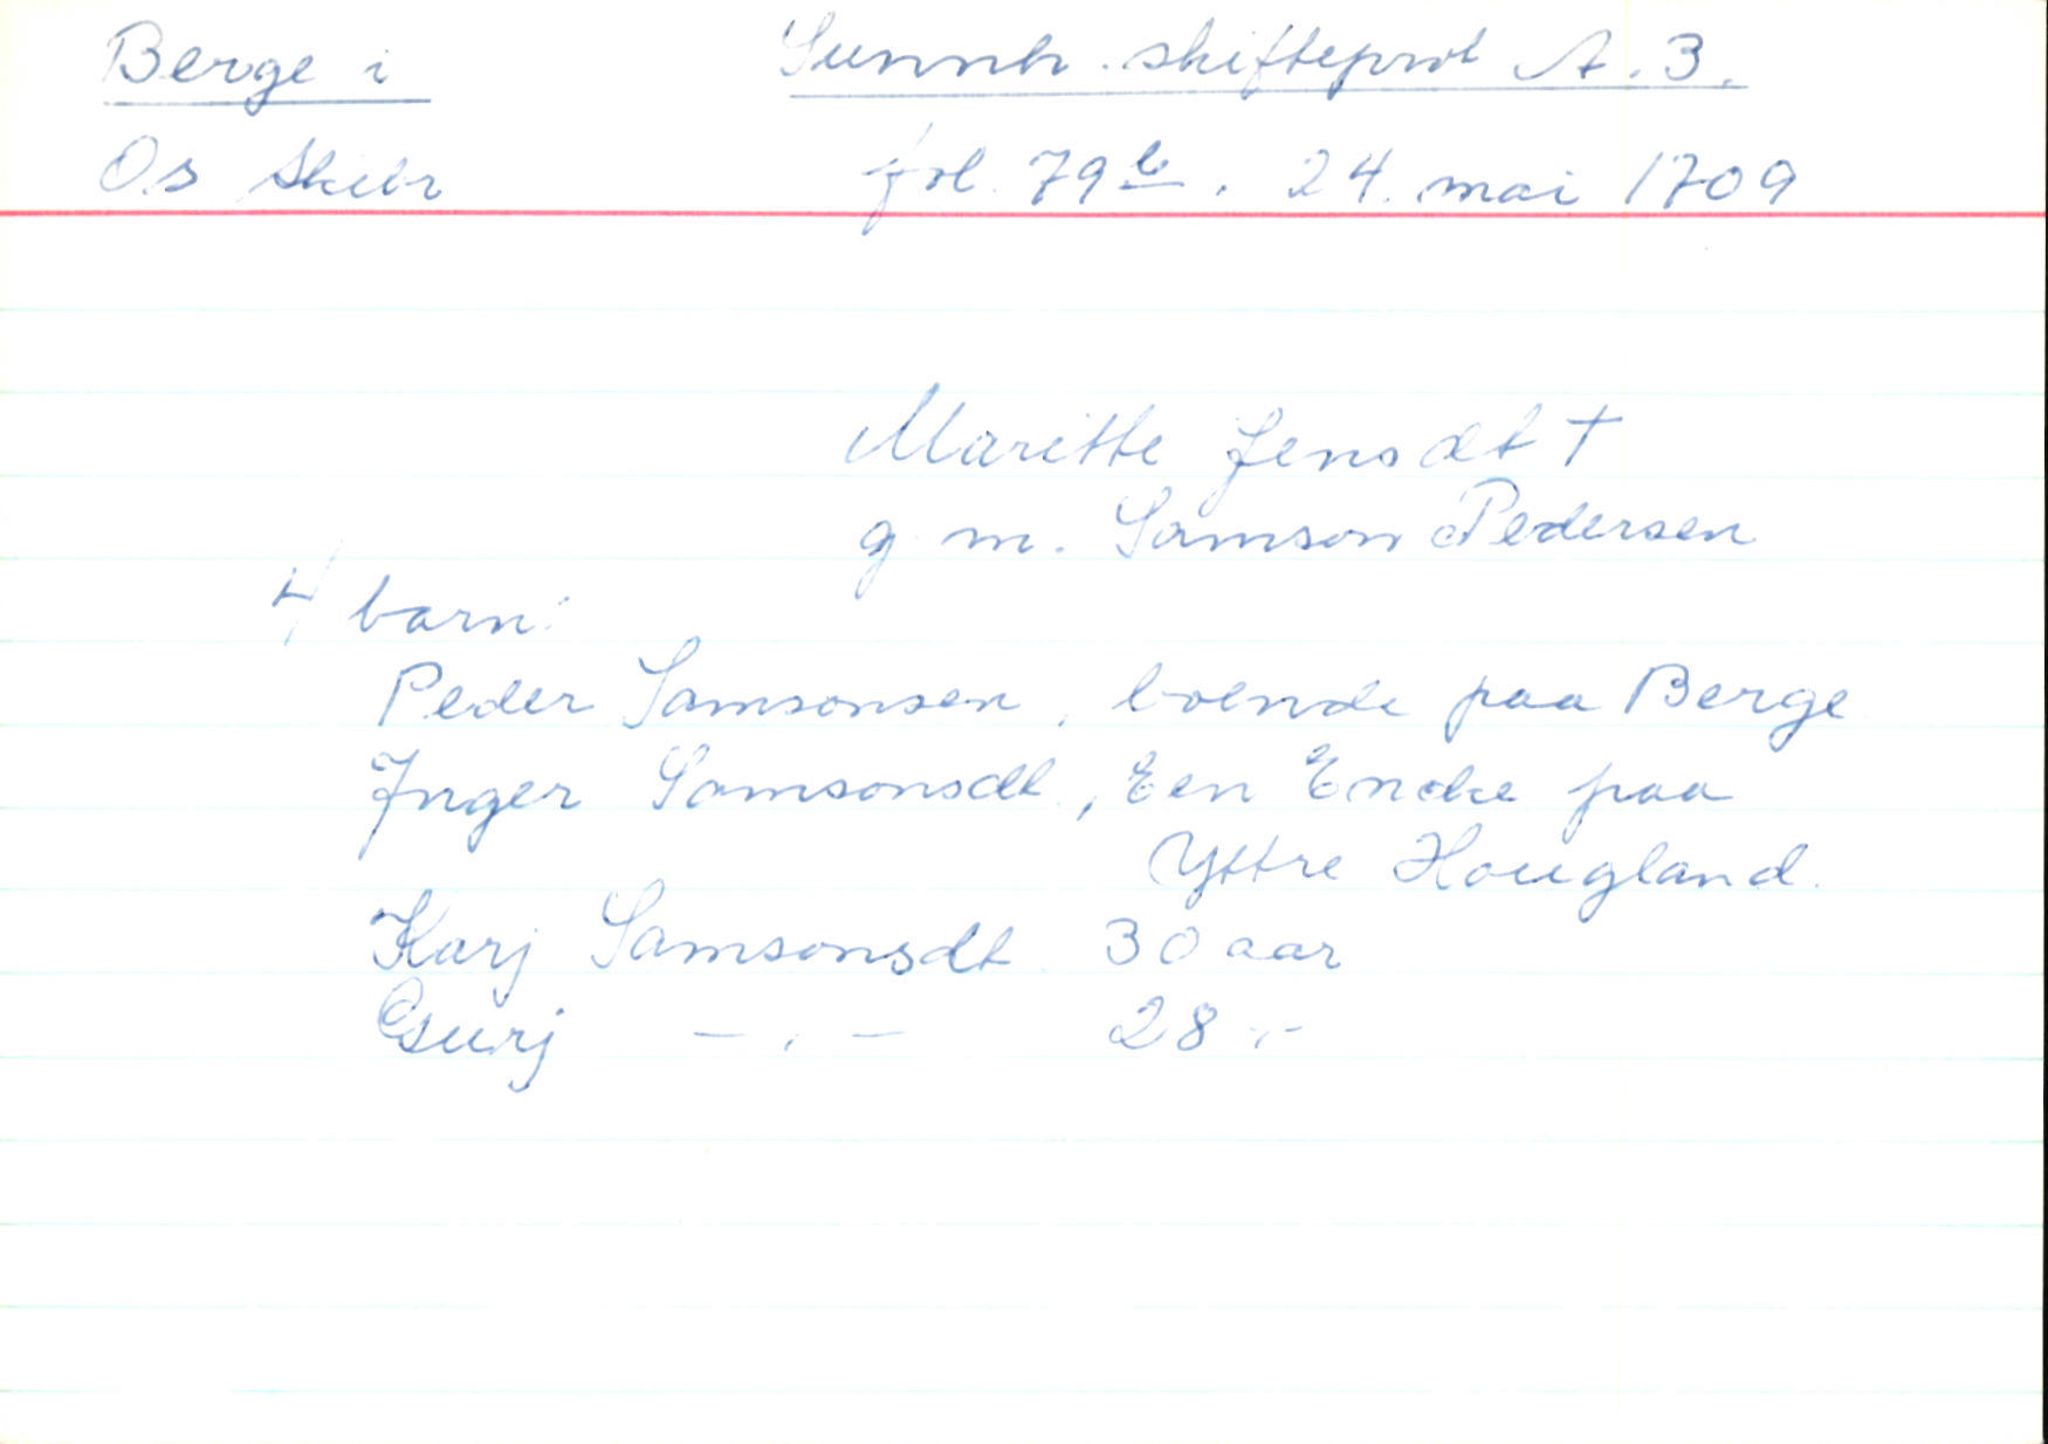 Berge i
Sunnh. skifteprot A. 3.
Os Skibr
fol. 79 b. 24. mai 1709
Maritte Jensdt †
g. m. Samson Pedersen
4 barn:
Peder Samsonsen, boende paa Berge
Inger Samsonsdt., Een Encke paa
Yttre Hougland.
Karj Samsonsdt. 30 aar
Gurj — " — 28 "-